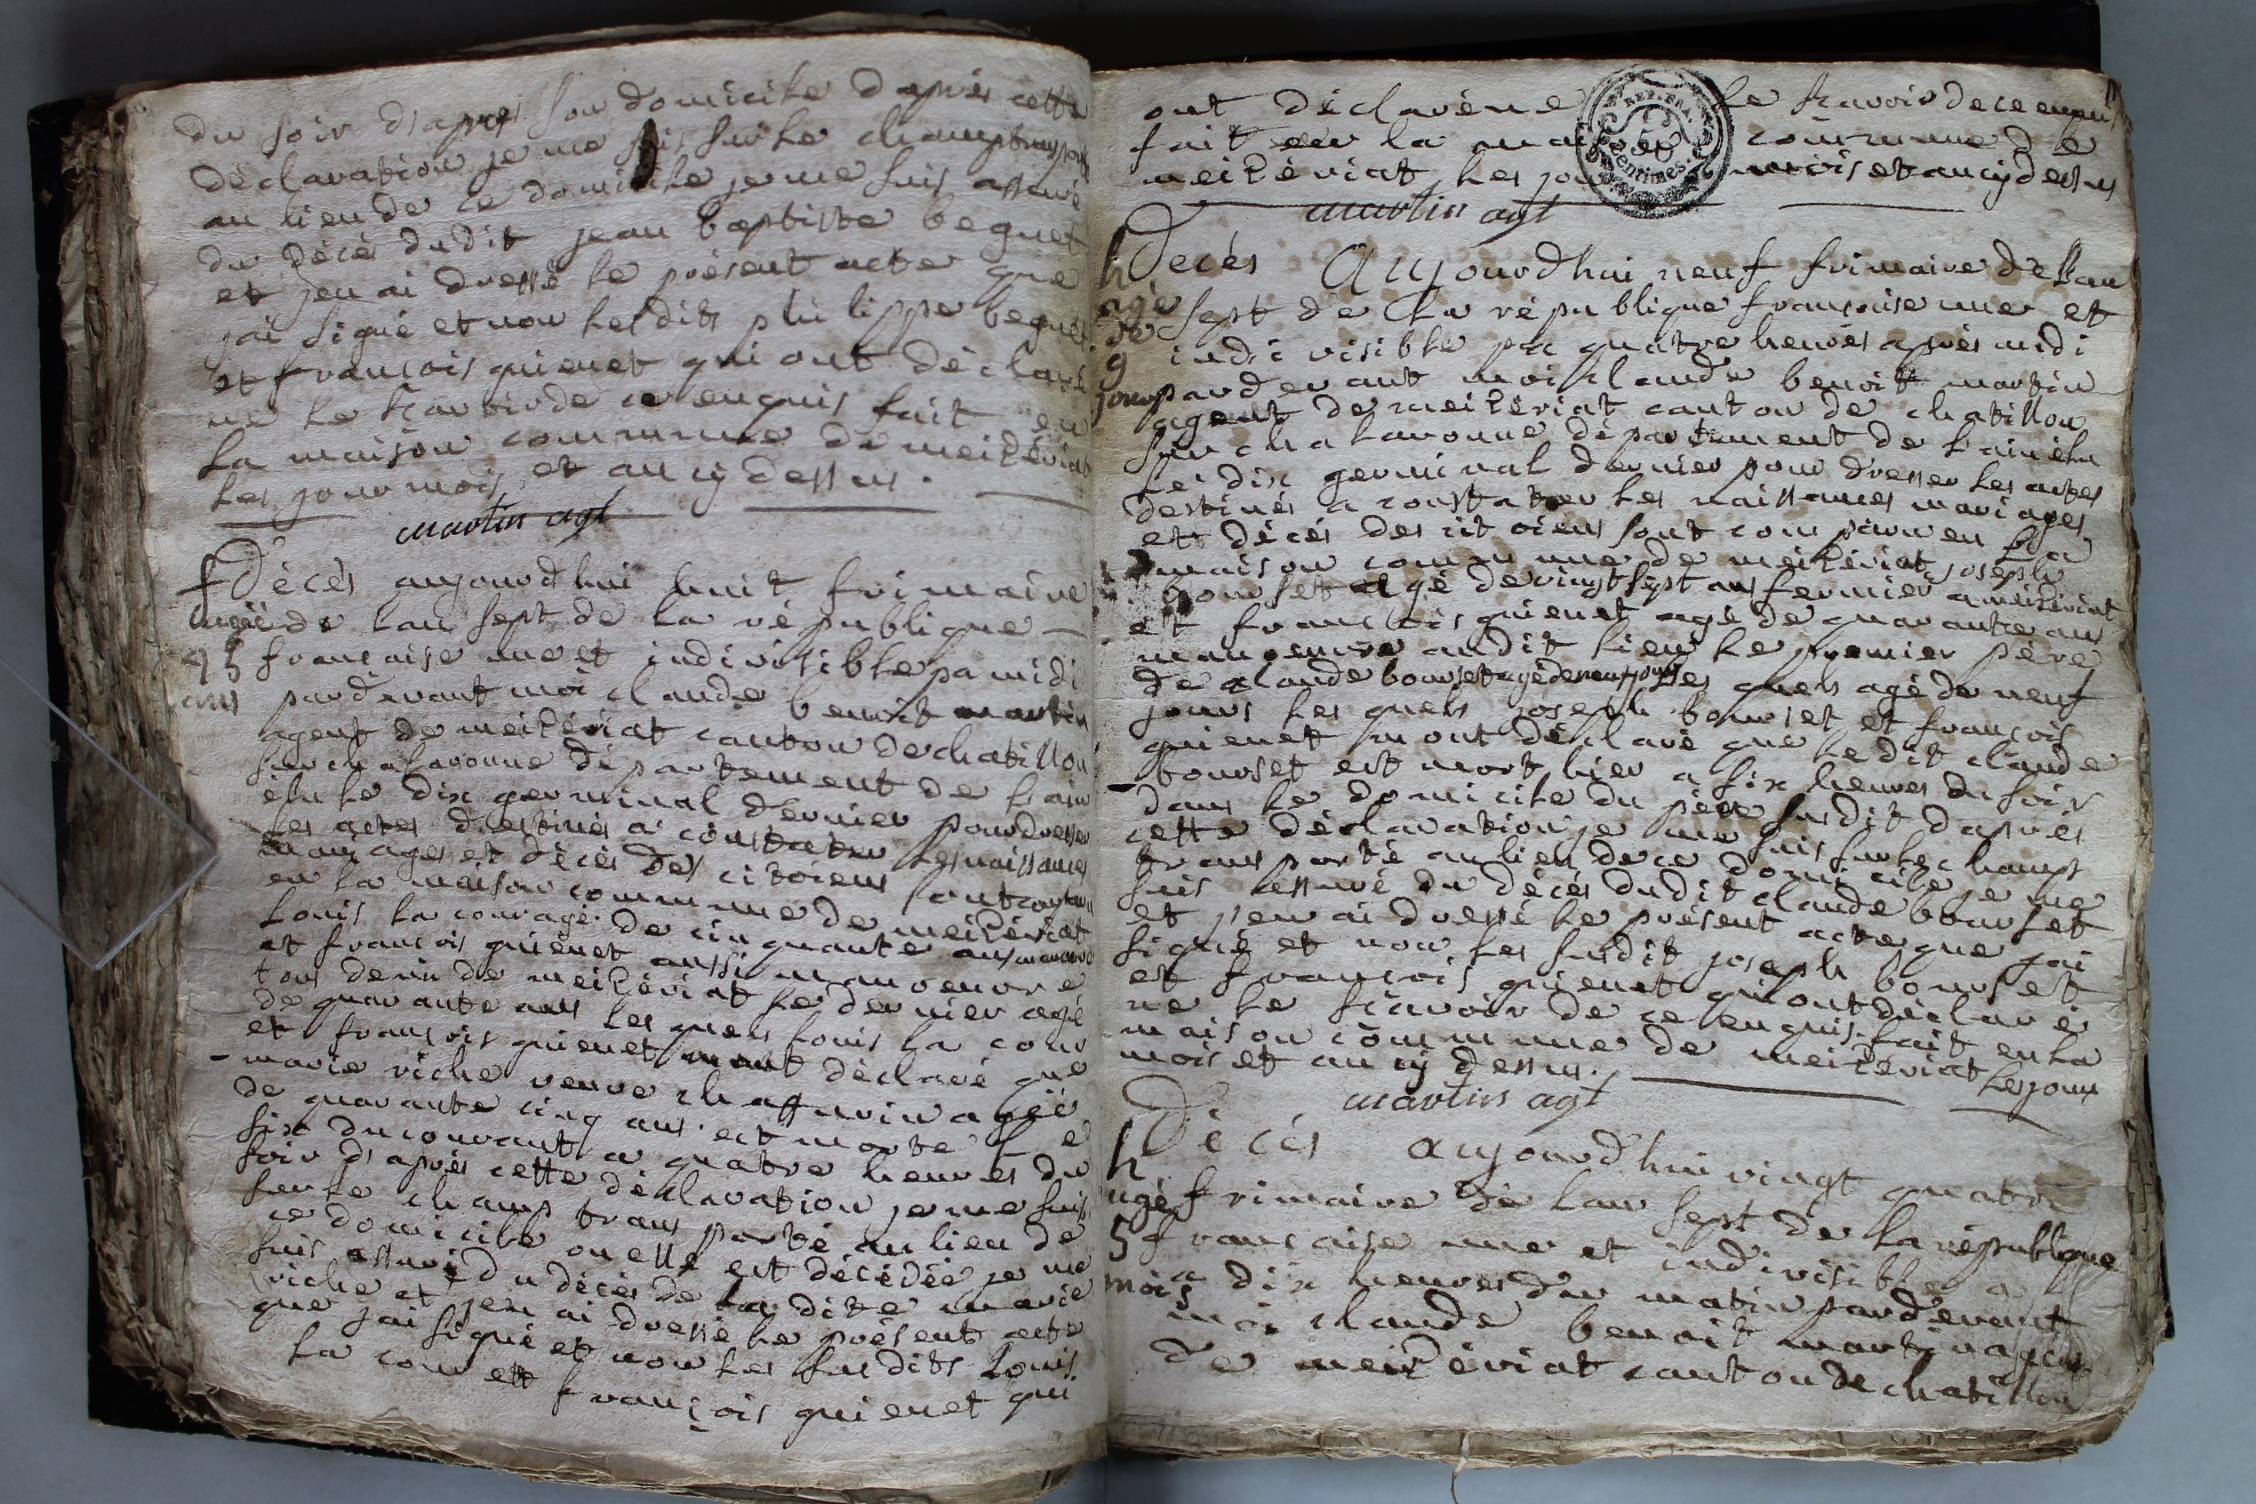 du soir d'apres son domicile d'après cette
déclaration je me suis sur le champ transporté
au lieu de ce domicile je me suis assuré
du décés dudit jean baptiste beguet
et j'en ai dressé le présent acte que
j'ai signé et non lesdits philippe beguet
et françois guienet qui ont déclaré
ne le sçavoir de ce enquis fait en
la maison commune de meizériat
les jour mois et an cÿ dessus.
martin agt
f Décès aujourdhui huit frimaire
ageë de lan sept de la république
45 française une et indivisible pa midi
ans pardevant moi claude benoit martin
agent de meizériat canton de chatillon
sur chalaronne département de lain
élu le dix germinal dernier pour dresser
les actes destinés a constater les naissances
mariages et décès des citoiens sont comparu
en la maison commune de meizériat
louis la cour agé de cinquante ans manoeuvre
et françois guienet aussi manoeuvre
tous deux de meizériat le dernier agé
de quarante ans les quels louis la cour
et françois guienet mont déclaré que
marie riche veuve chassurin agée
de quarante cinq ans. est morte le
six du courant a quatre heures du
soir d'après cette déclaration je me suis
sur le champ transporté au lieu de
ce domicile ou elle est décédée je me
suis assuré du décès de la dite marie
riche et j'en ai dressé le présent acte
que jai signé et non les susdits Louis
la cour et françois guienet qui
ont déclaré ne le sçavoir de ce enquis
fait en la maison commune de
meizériat les jour mois et an cÿ dessus
REP. FRA.
50
centimes
martin agt
h Decés Aujourdhui neuf frimaire de lan
agé sept de la république française une et
de indivisible pa quatre heures après midi
9 jours pardevant moi claude benoit martin
agent de meizériat canton de chatillon
sur chalaronne département de lain élu
le dix germinal dernier pour dresser les actes
destinés a constater les naissances mariages
et décés des citoiens sont comparu en la
maison commune de meizériat joseph
bourset agé de vingt sept ans fermier a meizériat
et françois guienet agé de quarante ans
manoeuvre audit lieu le premier père
de claude bourset agé de neuf jours les quels agé de neuf
jours les quels joseph bourset et françois
guienet m ont déclaré que ledit claude
bourset est mort hier a six heures du soir
dans le domicile du père susdit daprès
cette déclaration je me suis sur le champ
transporté au lieu de ce domicile je me
suis assuré du décés dudit claude bourset
et j'en ai dressé le présent acte que jai
signé et non les susdit joseph bourset
et françois guienet qui ont déclaré
ne le sçavoir de ce enquis. fait en la
maison commune de meizériat les jour
mois et an cÿ dessus.
martin agt
h Décés aujourdhui vingt quatre
agé frimaire de lan sept de la république
5 française une et indivisible a
mois a dix heures du matin pardevant
moi claude benoit martin agent
de meizériat canton de chatillon